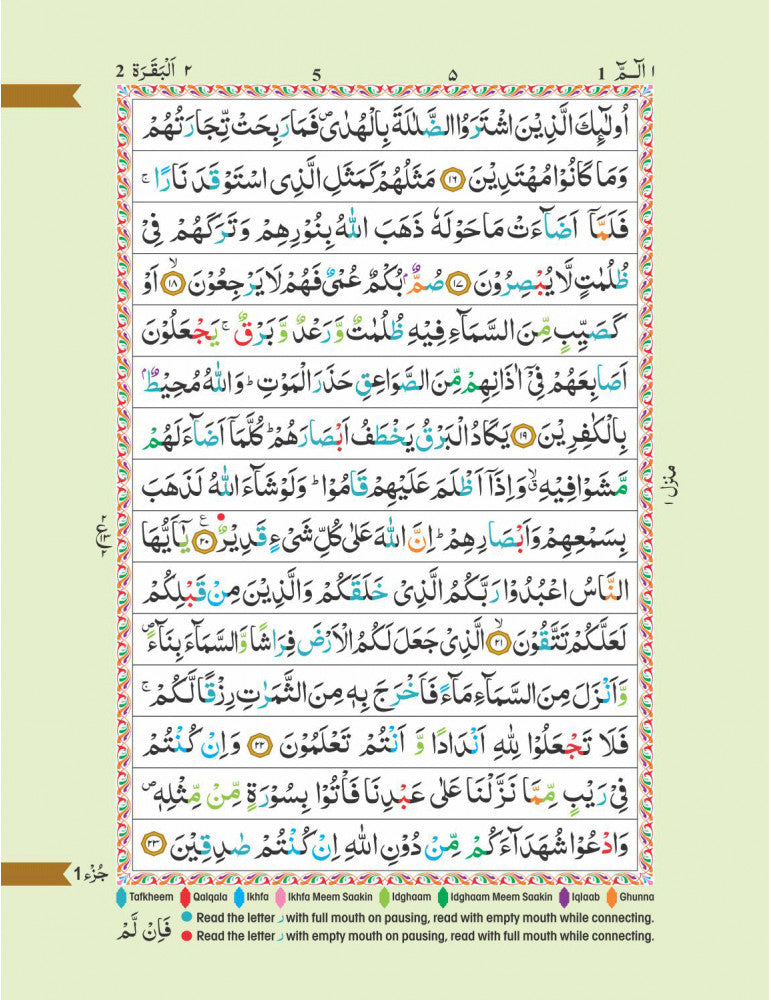 ٢ اَلْبَقَرَة 2
5 ۵
١ الٓـمّٓ 1
اُولٰٓئِكَ الَّذِیْنَ اشْتَرَوُا الضَّلٰلَةَ بِالْهُدٰی۪ فَمَا رَبِحَتْ تِّجَارَتُهُمْ
وَمَا كَانُوْا مُهْتَدِیْنَ ۝١٦ مَثَلُهُمْ كَمَثَلِ الَّذِی اسْتَوْقَدَ نَارًا ۚ
فَلَمَّاۤ اَضَآءَتْ مَا حَوْلَهٗ ذَهَبَ اللّٰهُ بِنُوْرِهِمْ وَتَرَكَهُمْ فِیْ
ظُلُمٰتٍ لَّا یُبْصِرُوْنَ ۝١٧ صُمٌّۢ بُكْمٌ عُمْیٌ فَهُمْ لَا یَرْجِعُوْنَ ۝١٨ۙ اَوْ
كَصَیِّبٍ مِّنَ السَّمَآءِ فِیْهِ ظُلُمٰتٌ وَّرَعْدٌ وَّبَرْقٌ ۚ یَجْعَلُوْنَ
اَصَابِعَهُمْ فِیْۤ اٰذَانِهِمْ مِّنَ الصَّوَاعِقِ حَذَرَ الْمَوْتِ ؕ وَاللّٰهُ مُحِیْطٌۢ
بِالْكٰفِرِیْنَ ۝١٩ یَكَادُ الْبَرْقُ یَخْطَفُ اَبْصَارَهُمْ ؕ كُلَّمَاۤ اَضَآءَ لَهُمْ
مَّشَوْا فِیْهِ ۙۗ وَاِذَاۤ اَظْلَمَ عَلَیْهِمْ قَامُوْا ؕ وَلَوْ شَآءَ اللّٰهُ لَذَهَبَ
بِسَمْعِهِمْ وَاَبْصَارِهِمْ ؕ اِنَّ اللّٰهَ عَلٰی كُلِّ شَیْءٍ قَدِیْرٌ ۝٢٠ع یٰۤاَیُّهَا
النَّاسُ اعْبُدُوْا رَبَّكُمُ الَّذِیْ خَلَقَكُمْ وَالَّذِیْنَ مِنْ قَبْلِكُمْ
لَعَلَّكُمْ تَتَّقُوْنَ ۝٢١ۙ الَّذِیْ جَعَلَ لَكُمُ الْاَرْضَ فِرَاشًا وَّالسَّمَآءَ بِنَآءً ۪
وَّاَنْزَلَ مِنَ السَّمَآءِ مَآءً فَاَخْرَجَ بِهٖ مِنَ الثَّمَرٰتِ رِزْقًا لَّكُمْ ۚ
فَلَا تَجْعَلُوْا لِلّٰهِ اَنْدَادًا وَّ اَنْتُمْ تَعْلَمُوْنَ ۝٢٢ وَاِنْ كُنْتُمْ
فِیْ رَیْبٍ مِّمَّا نَزَّلْنَا عَلٰی عَبْدِنَا فَاْتُوْا بِسُوْرَةٍ مِّنْ مِّثْلِهٖ ۪
وَادْعُوْا شُهَدَآءَكُمْ مِّنْ دُوْنِ اللّٰهِ اِنْ كُنْتُمْ صٰدِقِیْنَ ۝٢٣
منزل ١
٢ ع ١٣ ٢
جُزْء 1
Tafkheem Qalqala Ikhfa Ikhfa Meem Saakin Idghaam Idghaam Meem Saakin Iqlaab Ghunna
Read the letter ر with full mouth on pausing, read with empty mouth while connecting.
Read the letter ر with empty mouth on pausing, read with full mouth while connecting.
فَاِنْ لَّمْ